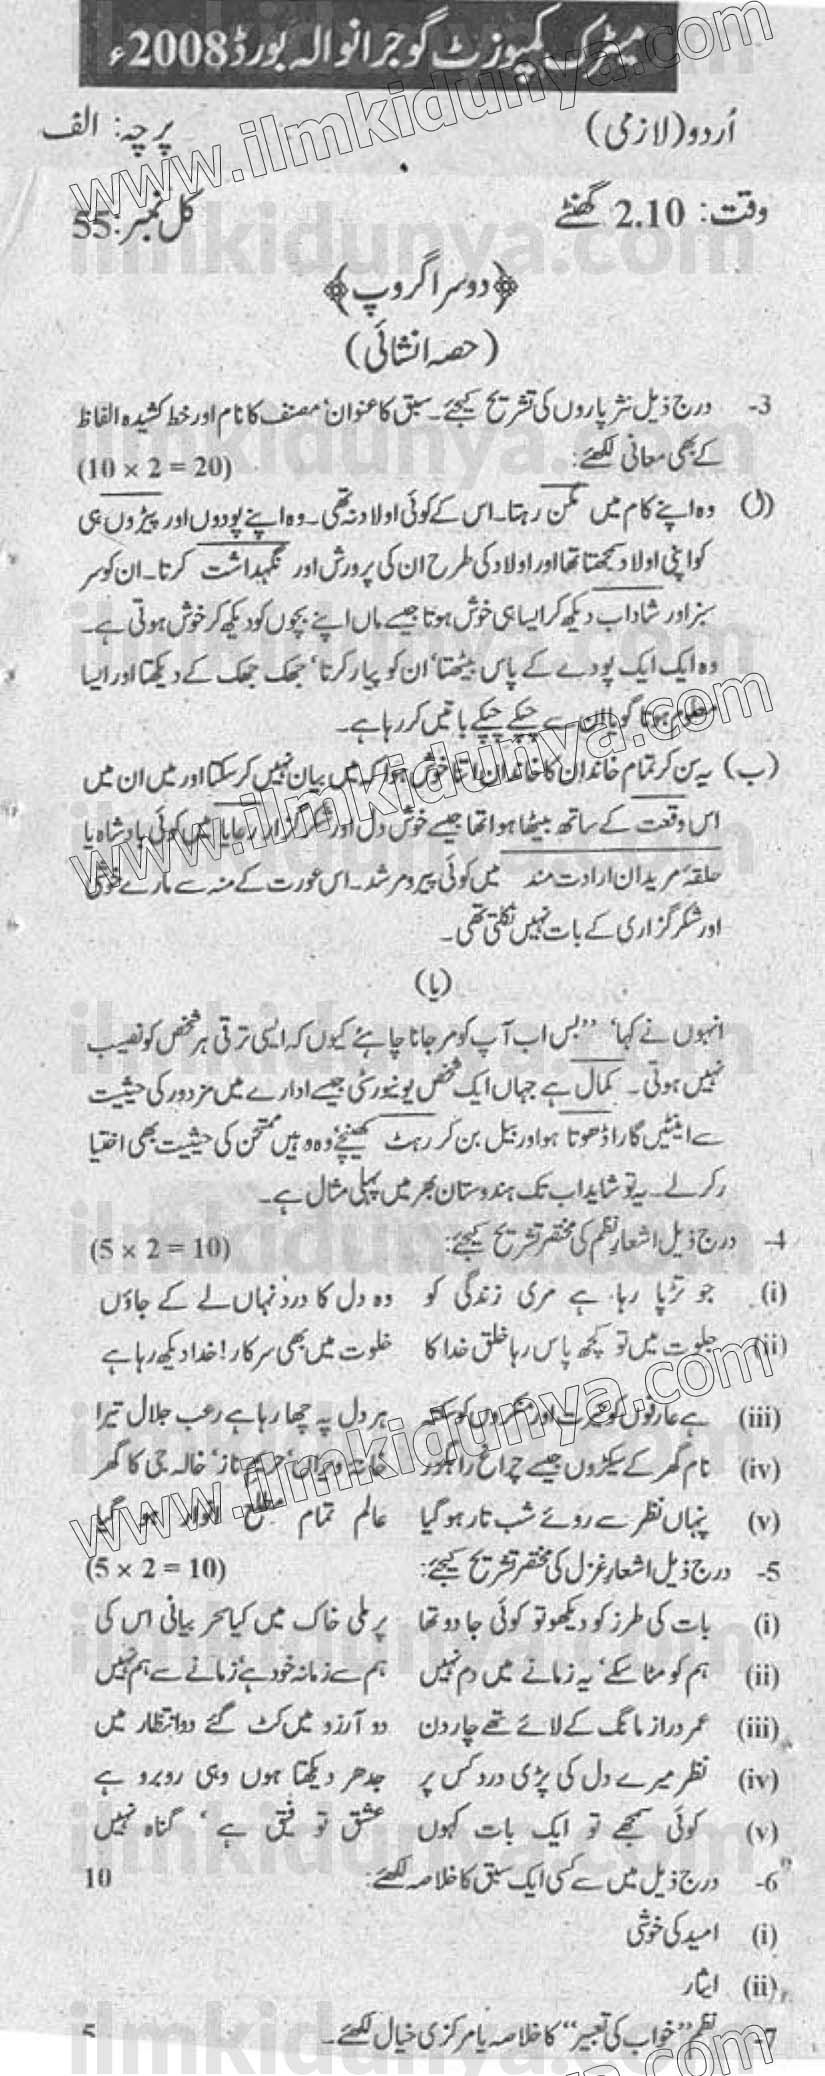 میٹرک کمپوزٹ گوجرانوالہ بورڈ 2008ء
اُردو (لازمی) پرچہ: الف
وقت: 2.10 گھنٹے کل نمبر: 55
﴿دوسرا گروپ﴾
(حصہ انشائی)
3- درج ذیل نثر پاروں کی تشریح کیجئے۔ سبق کا عنوان‘ مصنف کا نام اور خط کشیدہ الفاظ
کے بھی معانی لکھئے: (10 × 2 = 20)
(ا) وہ اپنے کام میں مگن رہتا۔ اس کے کوئی اولاد نہ تھی۔ وہ اپنے پودوں اور پیڑوں ہی
کو اپنی اولاد سمجھتا تھا اور اولاد کی طرح ان کی پرورش اور نگہداشت کرتا۔ ان کو سر
سبز اور شاداب دیکھ کر ایسا ہی خوش ہوتا جیسے ماں اپنے بچوں کو دیکھ کر خوش ہوتی ہے۔
وہ ایک ایک پودے کے پاس بیٹھتا‘ ان کو پیار کرتا‘ جھک جھک کے دیکھتا اور ایسا
معلوم ہوتا گویا ان سے چپکے چپکے باتیں کر رہا ہے۔
(ب) یہ سن کر تمام خاندان کا خاندان اتنا خوش ہوا کہ میں بیان نہیں کر سکتا اور میں ان میں
اس وقعت کے ساتھ بیٹھا ہوا تھا جیسے خوش دل اور شکر گزار رعایا میں کوئی بادشاہ یا
حلقۂ مریدان ارادت مند میں کوئی پیرو مرشد۔ اس عورت کے منہ سے مارے خوشی
اور شکر گزاری کے بات نہیں نکلتی تھی۔
(یا)
انہوں نے کہا‘ ’’بس اب آپ کو مر جانا چاہئے کیوں کہ ایسی ترقی ہر شخص کو نصیب
نہیں ہوتی۔ کمال ہے جہاں ایک شخص یونیورسٹی جیسے ادارے میں مزدور کی حیثیت
سے اینٹیں گارا ڈھوتا ہو اور بیل بن کر رہٹ کھینچے وہ وہیں ممتحن کی حیثیت بھی اختیا
ر کر لے۔ یہ تو شاید اب تک ہندوستان بھر میں پہلی مثال ہے۔
4- درج ذیل اشعار نظم کی مختصر تشریح کیجئے: (5 × 2 = 10)
(i) جو تڑپا رہا ہے مری زندگی کو وہ دل کا درد نہاں لے کے جاؤں
(ii) جلوت میں تو کچھ پاس رہا خلق خدا کا خلوت میں بھی سرکار! خدا دیکھ رہا ہے
(iii) ہے عارفوں کو حیرت اور منکروں کو سکتہ ہر دل پہ چھا رہا ہے رعب جلال تیرا
(iv) نام گھر کے سیکڑوں جیسے چراغ راہگزر خانۂ ویراں‘ حریم ناز‘ خالہ جی کا گھر
(v) پنہاں نظر سے روئے شب تار ہو گیا عالم تمام مطلع انوار ہو گیا
5- درج ذیل اشعار غزل کی مختصر تشریح کیجئے: (5 × 2 = 10)
(i) بات کی طرز کو دیکھو تو کوئی جادو تھا پر ملی خاک میں کیا سحر بیانی اس کی
(ii) ہم کو مٹا سکے‘ یہ زمانے میں دم نہیں ہم سے زمانہ خود ہے‘ زمانے سے ہم نہیں
(iii) عمر دراز مانگ کے لائے تھے چار دن دو آرزو میں کٹ گئے دو انتظار میں
(iv) نظر میرے دل کی پڑی درد کس پر جدھر دیکھتا ہوں وہی روبرو ہے
(v) کوئی سمجھے تو ایک بات کہوں عشق توفیق ہے‘ گناہ نہیں
6- درج ذیل میں سے کسی ایک سبق کا خلاصہ لکھئے: 10
(i) امید کی خوشی
(ii) ایثار
7- نظم ’’خواب کی تعبیر‘‘ کا خلاصہ یا مرکزی خیال لکھئے۔ 5
www.ilmkidunya.com